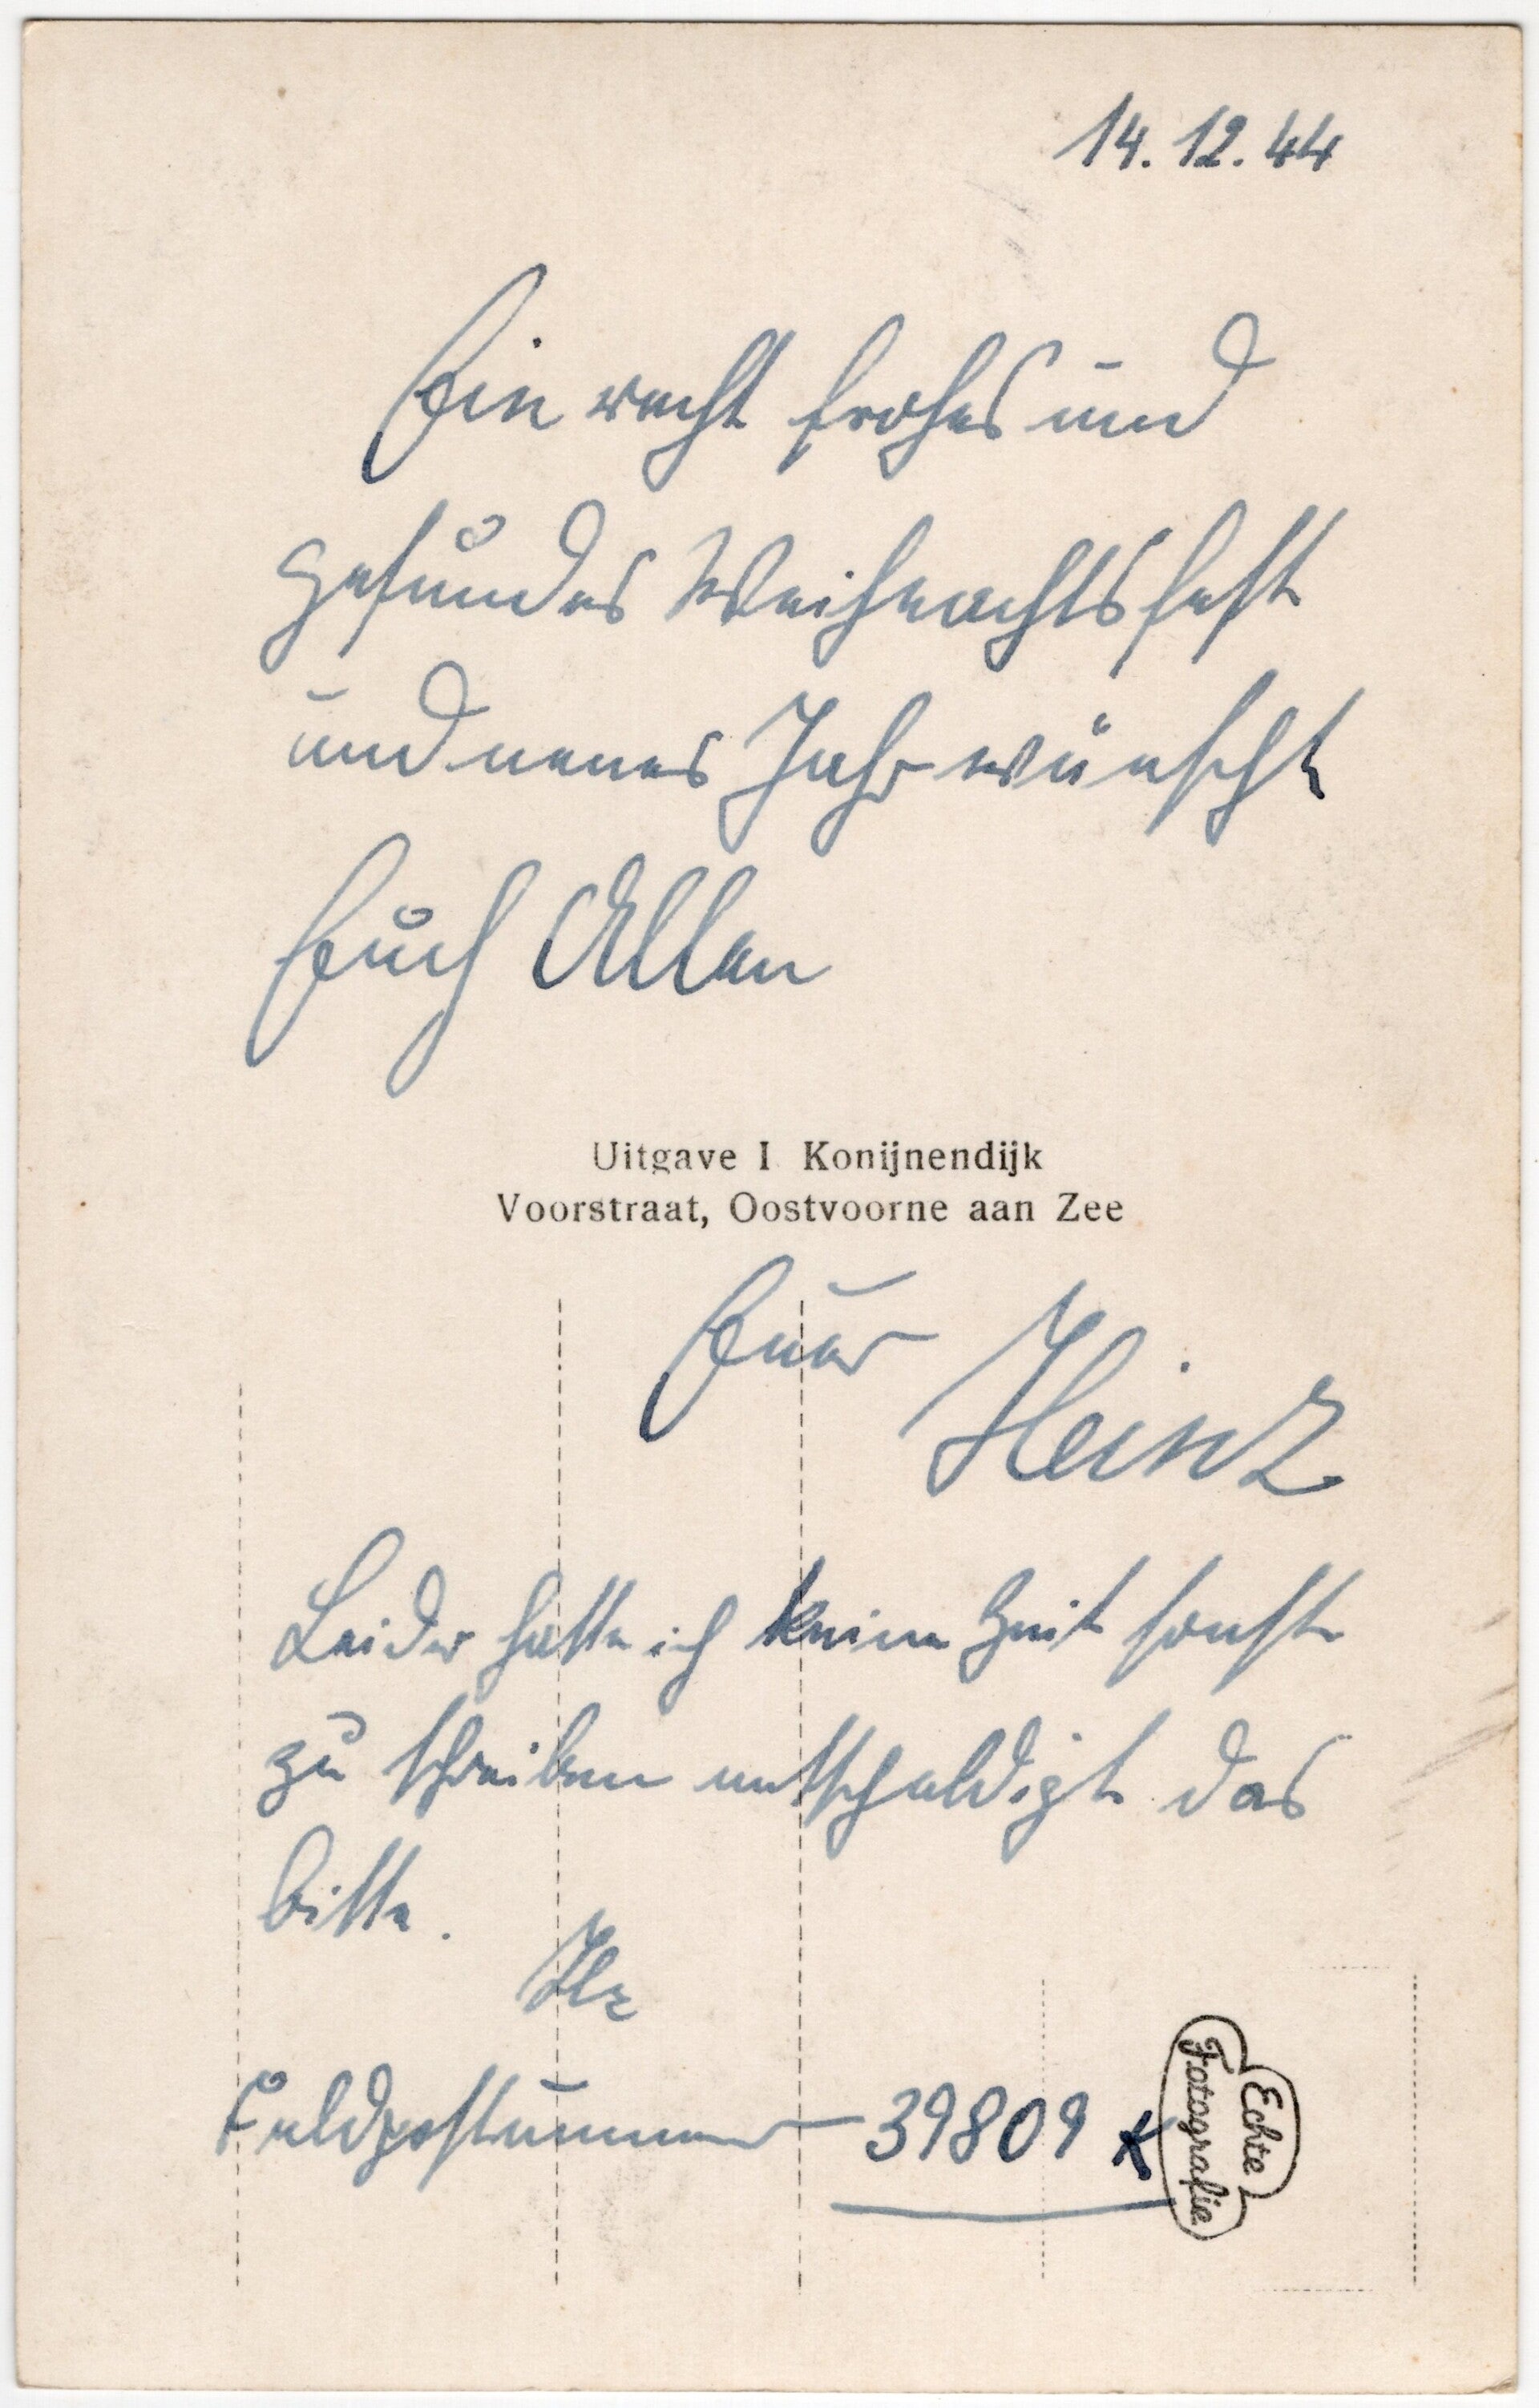 14. 12. 44
Ein recht frohes und
gesundes Weihnachtsfest
und neues Jahr wünscht
Euch Allen
Uitgave I. Konijnendijk
Voorstraat, Oostvoorne aan Zee
Euer Heinz
Leider hatte ich keine Zeit sonst
zu schreiben entschuldigt das
bitte.
Hz
Feldpostnummer 39809 K
Echte
Fotografie